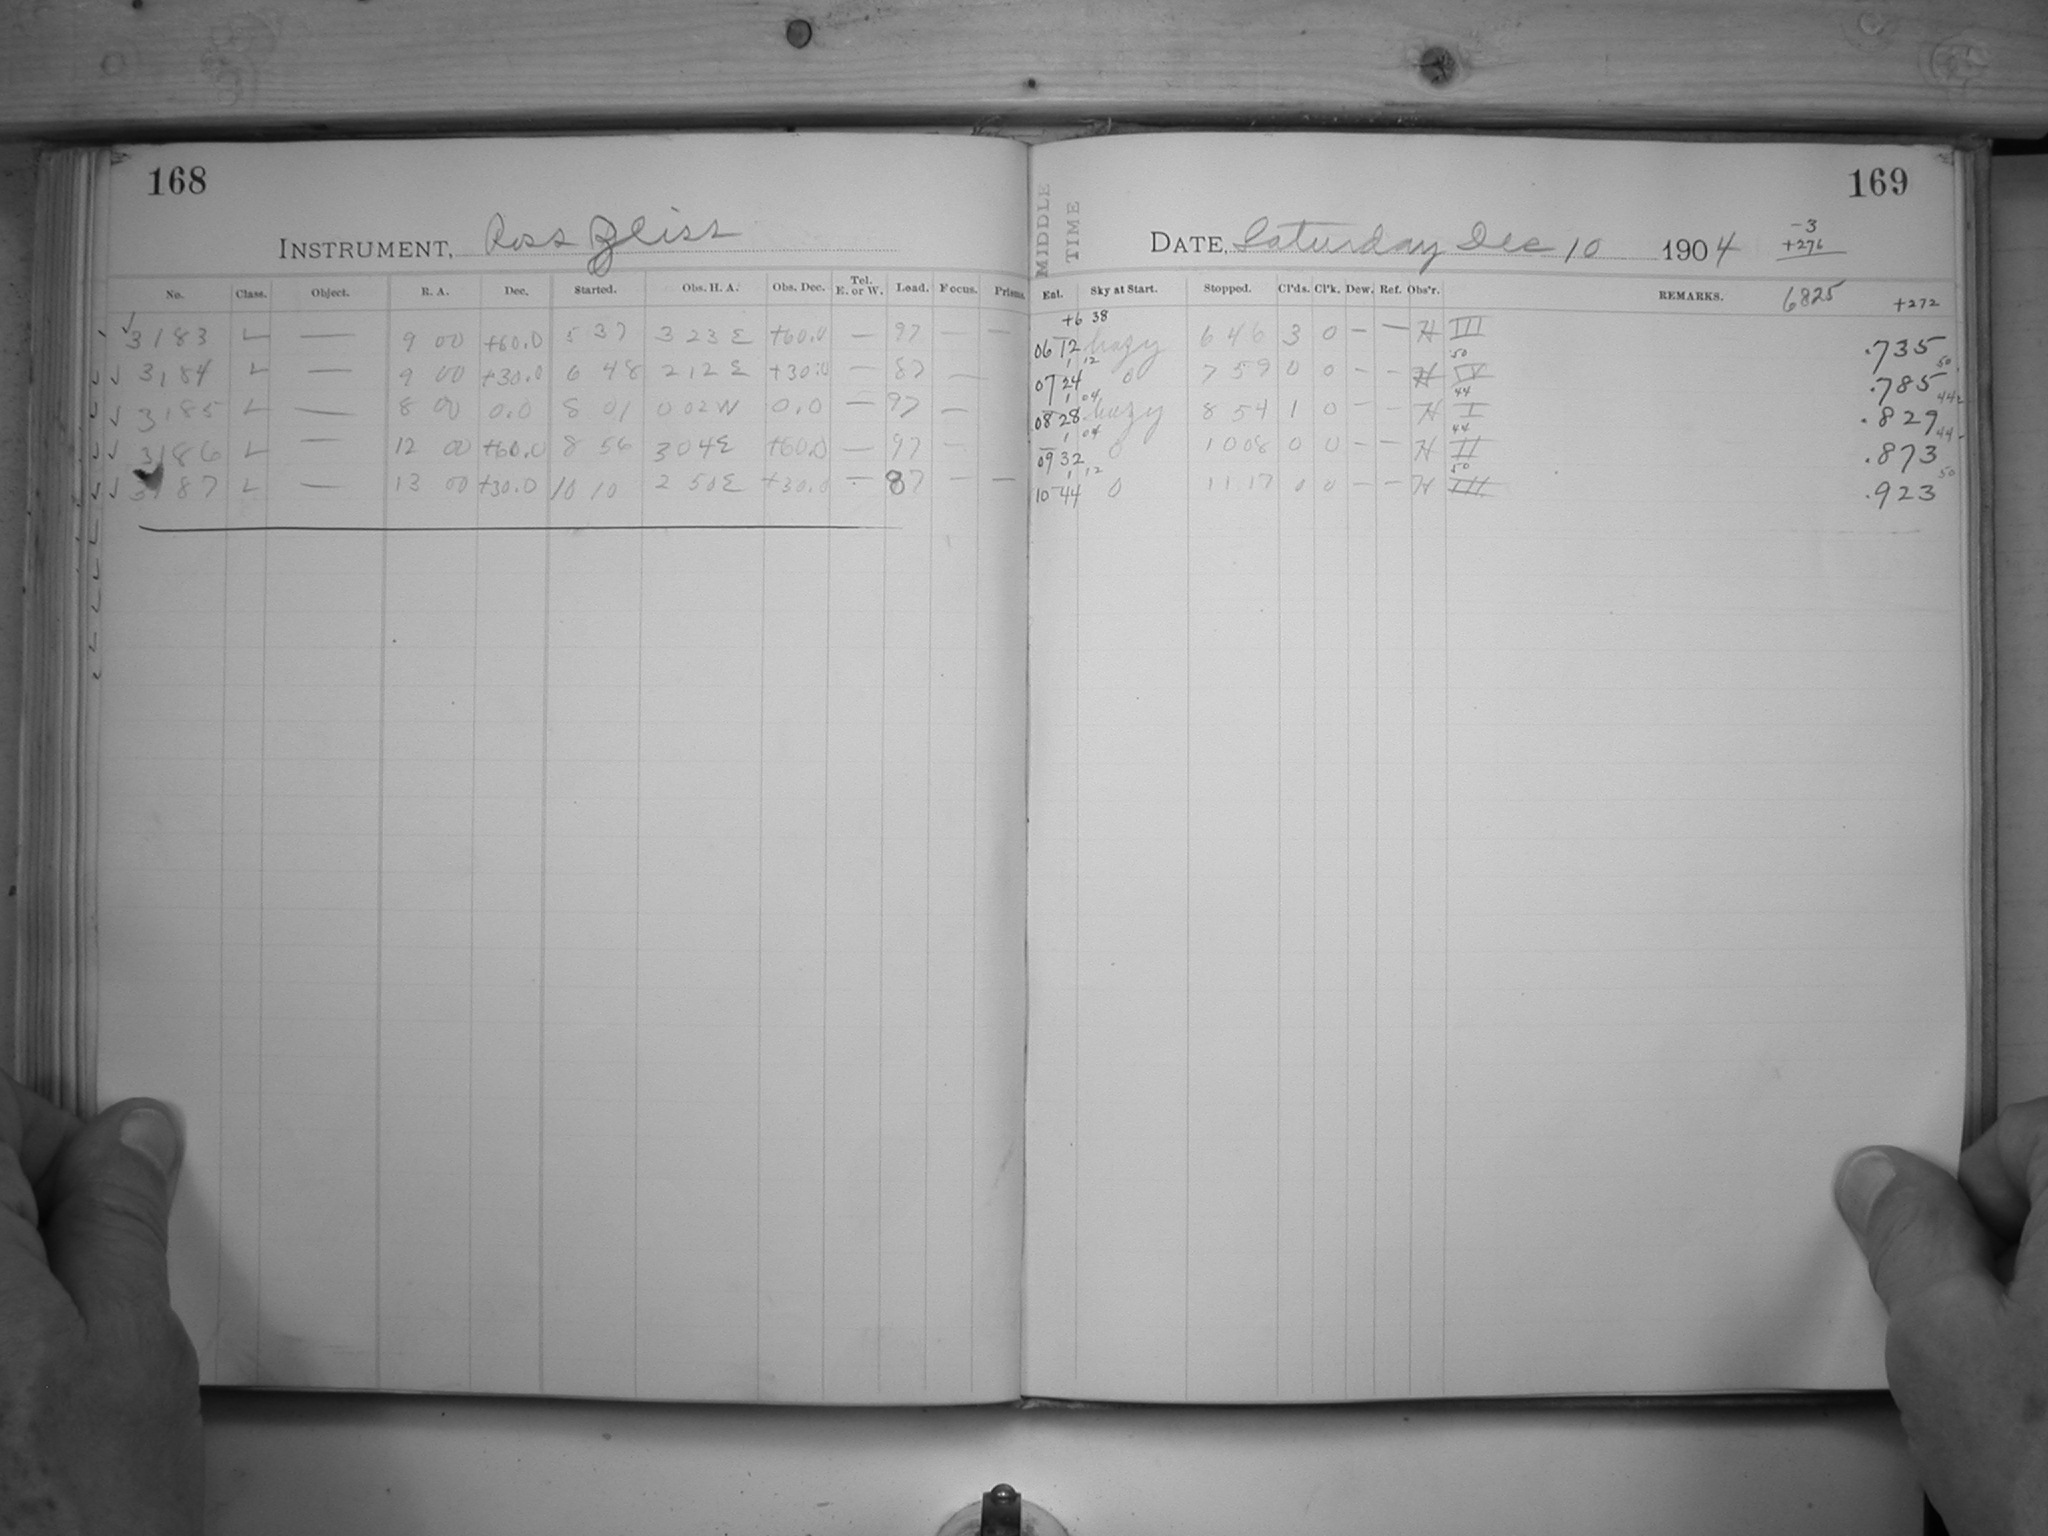 168
INSTRUMENT, Ross Zeiss
No. Class. Object. R. A. Dec. Started. Obs. H. A. Obs. Dec. Tel. E. or W. Load. Focus. Prisms.
3183 L — 9 00 +60.0 5 37 3 23 E +60.0 — 97 — —
3184 L — 9 00 +30.0 6 48 2 12 E +30.0 — 87 —
3185 L — 8 00 0.0 8 01 0 02 W 0.0 — 97 —
3186 L — 12 00 +60.0 8 56 3 04 E +60.0 — 97 —
3187 L — 13 00 +30.0 10 10 2 50 E +30.0 — 87 — —
169
MIDDLE TIME
DATE, Saturday Dec 10 1904
-3
+276
Eat. Sky at Start. Stopped. Cl'ds. Cl'k. Dew. Ref. Obs'r. REMARKS. 6825 +272
+6 38
06 12 hazy 6 46 3 0 — — H III .735
1 12 50 50
07 24 0 7 59 0 0 - - H IV .785
1 04 44 44
08 28 hazy 8 54 1 0 - - H I .829
1 04 44 44
09 32 0 10 08 0 0 — — H II .873
1 12 50 50
10 44 0 11 17 0 0 — — H III .923